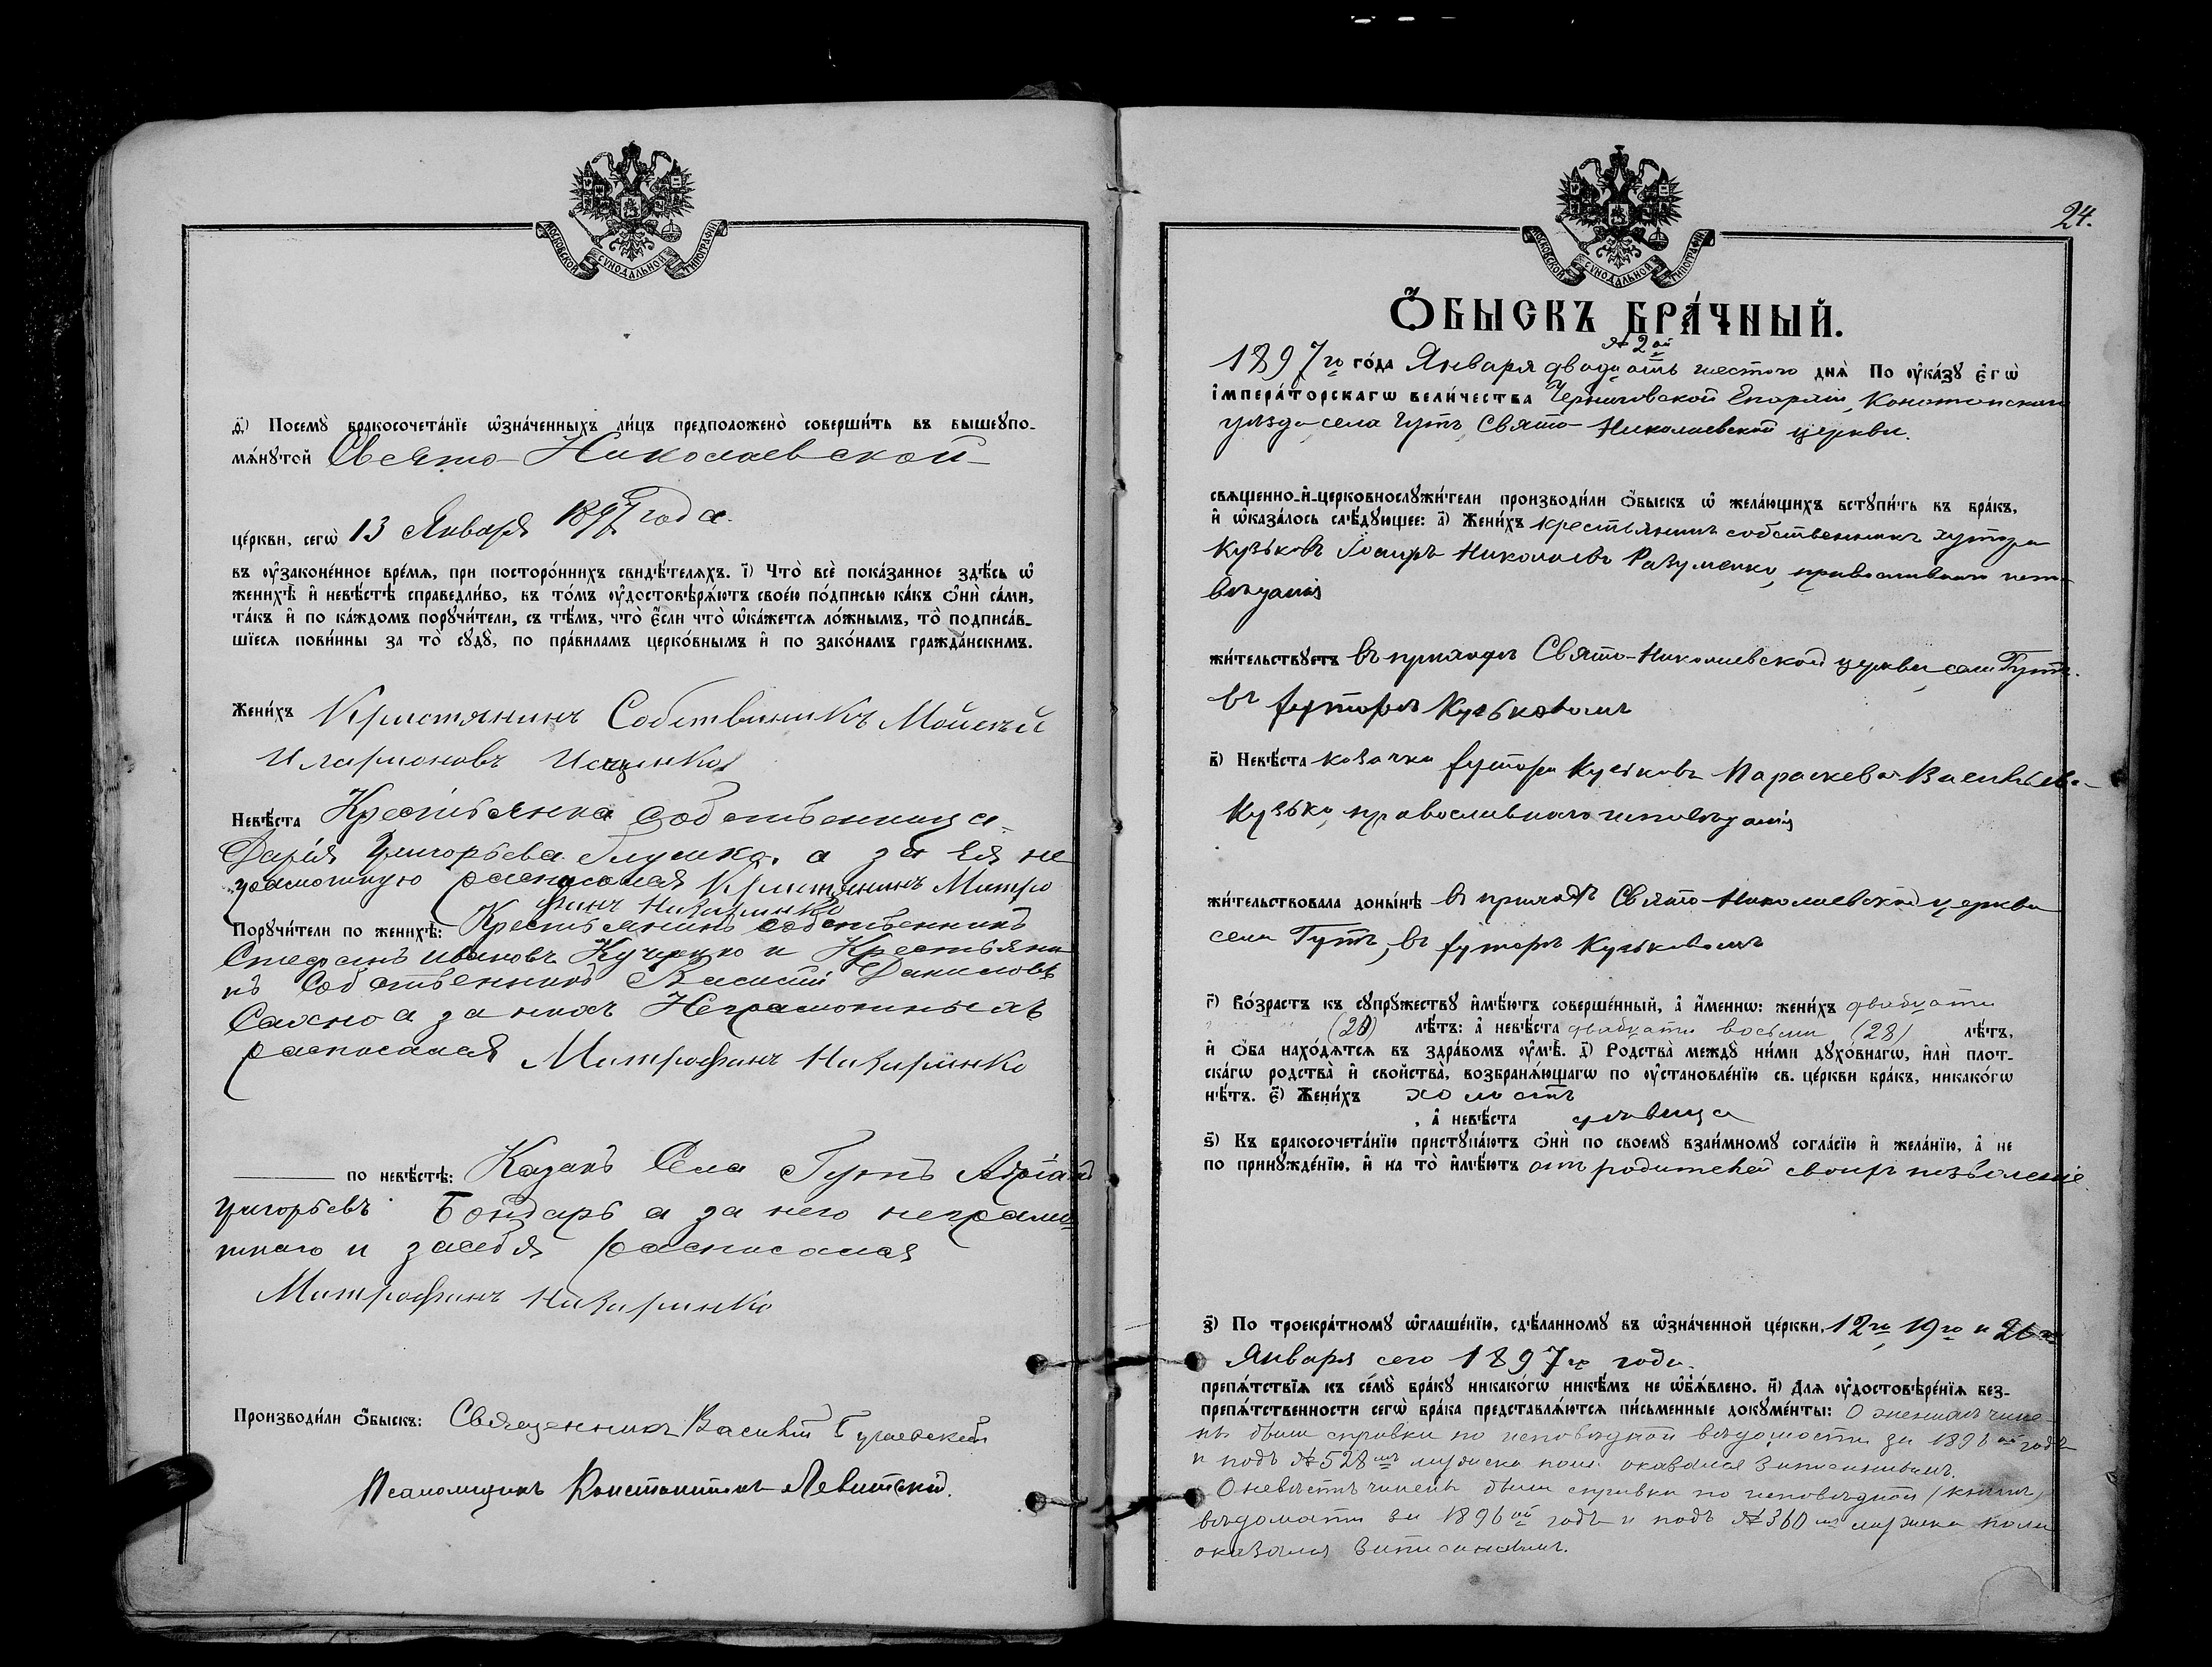 МОСКОВСКОЙ СУНОДАЛЬНОЙ ТИПОГРАФІИ
д҃і) Посемꙋ̀ бракосочета́нїе ѡ҆зна́ченныхъ ли́цъ предположено̀ соверши́ть въ вышеꙋпо-
мѧ́нꙋтой Свято-Николаевской
це́ркви, сегѡ̀ 13 Января 1897 года.
въ ᲂу҆законе́нное вре́мѧ, при посторо́ннихъ свидѣ́телѧхъ. і҃) Что̀ всѐ пока́занное здѣ́сь ѡ҆
женихѣ̀ и҆ невѣ́стѣ справедли́во, въ то́мъ ᲂу҆достовѣрѧ́ютъ свое́ю по́дписью ка́къ ѻ҆нѝ са́ми,
та́къ и҆ по ка́ждомъ порꙋчи́тели, съ тѣ́мъ, что̀ є҆́сли что̀ ѡ҆ка́жетсѧ ло́жнымъ, то̀ подписа́в-
шїесѧ пови́нны за то̀ сꙋдꙋ̀, по пра́виламъ церко́внымъ и҆ по зако́намъ гражда́нскимъ.
Жени́хъ Кристянинъ Собствиникъ Мойсей
Иларионовъ Ищинко
Невѣ́ста Крестьянка собственница
Дарія Григорьева а за Ея не
грамотную расписался Кристянинъ Митро
фанъ Назаринко
Порꙋчи́тели по женихѣ̀: Крестьянинъ собственникъ
Стефанъ Ивановъ Кучерко и Крестьяни
нъ Собственникъ Василій Даниловъ
Сахно а за нихъ Неграмотныхъ
расписался Митрофанъ Назаринко
по невѣ́стѣ: Казакъ Села Гутъ
Григорьевъ Бондарь а за него неграмо
тнаго и засебя расписался
Митрофанъ Назаринко
Производи́ли ѻ҆́быскъ: Священникъ Василій
Псаломщикъ Константинъ Левитскій.
МОСКОВСКОЙ СУНОДАЛЬНОЙ ТИПОГРАФІИ
24.
Ѻ҆́БЫСКЪ БРА́ЧНЫЙ.
№ 2ой
1897го го́да Января двадцать шестого днѧ̀ По ᲂу҆ка́зꙋ є҆гѡ̀
і҆мпера́торскагѡ вели́чества Черниговской Епархіи, Конотопскаго
уѣзда села Гутъ Свято-Николаевской церкви.
свѧще́нно-и҆-церковнослꙋжи́тели производи́ли ѻ҆́быскъ ѡ҆ жела́ющихъ встꙋпи́ть въ бра́къ,
и҆ ѡ҆каза́лось слѣ́дꙋющее: а҃) Жени́хъ крестьянинъ собственникъ хутора
Кузьковъ Николаевъ Разуменко, православнаго испо-
вѣданія
жи́тельствꙋетъ въ приходѣ Свято-Николаевской церкви села Гутъ.
въ хуторѣ Кузьковомъ
в҃) Невѣ́ста козачка хутора Кузьковъ Параскева Васильева
Кузько, православнаго исповѣданія
жи́тельствовала доны́нѣ въ приходѣ Свято-Николаевской церкви
села Гутъ, въ хуторѣ Кузьковомъ
г҃) Во́зрастъ къ сꙋпрꙋ́жествꙋ и҆мѣ́ютъ соверше́нный, а҆̀ и҆́меннѡ: жени́хъ двадцати
(20) лѣ́тъ: а҆̀ невѣ́ста двадцати восьми (28) лѣ́тъ,
и҆ ѻ҆́ба нахо́дѧтсѧ въ здра́вомъ ᲂу҆мѣ̀. д҃) Родства̀ междꙋ̀ ни́ми дꙋхо́внагѡ, и҆лѝ плот-
ска́гѡ родства̀ и҆ свойства̀, возбранѧ́ющагѡ по ᲂу҆становле́нїю св. це́ркви бра́къ, никако́гѡ
нѣ́тъ. є҃) Жени́хъ холостъ
, а҆̀ невѣ́ста дѣвица
ѕ҃) Къ бракосочета́нїю пристꙋпа́ютъ ѻ҆нѝ по своемꙋ̀ взаи́мномꙋ согла́сїю и҆ жела́нїю, а҆̀ не
по принꙋжде́нїю, и҆ на то̀ и҆мѣ́ютъ отъ родителей своихъ позволеніе.
з҃) По троекра́тномꙋ ѡ҆глаше́нїю, сдѣ́ланномꙋ въ ѡ҆зна́ченной це́ркви, 12го, 19го и 26го
Января сего 1897го года.
препѧ́тствїѧ къ семꙋ̀ бра́кꙋ никако́гѡ никѣ́мъ не ѡ҆б̾ѧ́влено. и҃) Длѧ ᲂу҆достовѣре́нїѧ без-
препѧ́тственности сегѡ̀ бра́ка представлѧ́ютсѧ пи́сьменные докꙋме́нты: О женихѣ чине-
ны были справки по исповѣдной вѣдомости за 1896ой годъ
и подъ №528мъ мужска пола оказался записаннымъ.
О невѣстѣ чинены были справки по исповѣдной (книгѣ)
вѣдомости за 1896ой годъ и подъ №360мъ пола
оказалась записанной.